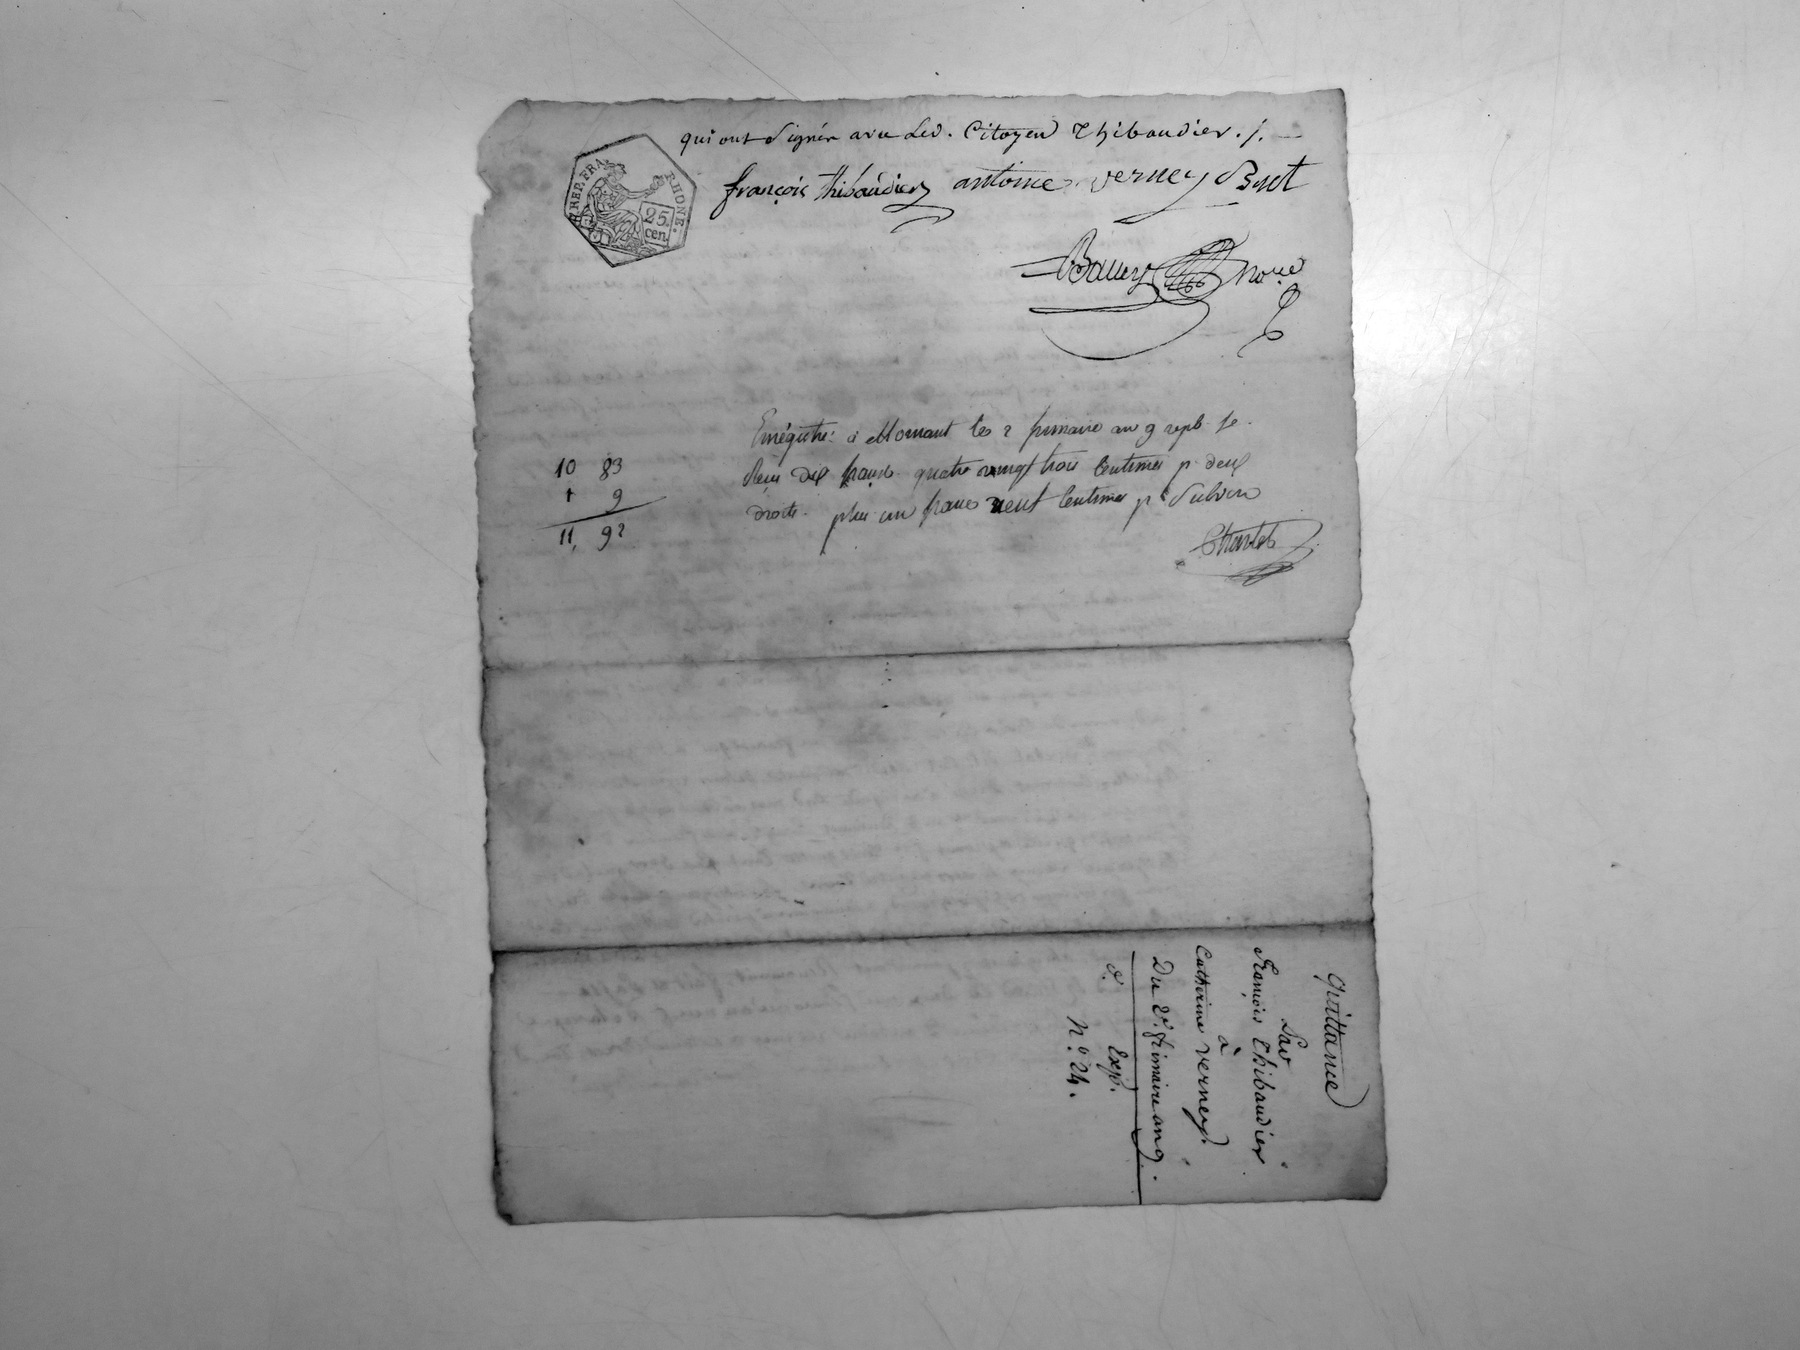 qui ont Signés avec Led. Citoyen Thibaudier ./.
REP. FRA.
RHONE.
25.
cen.
françois thibaudier antoine verney Binet
Bauery Nore
Enregistré à Mornant les 2 frimaire an 9 repb. fe.
Reçu dix francs quatre vingt trois Centimes pr deux
droits. plus un franc neuf Centimes pr Subvon
10 83
1 9
11, 92
Charlet
quittance
Par
François Thibaudier
à
Catherine Verney.
Du 2. frimaire an 9.
d. Exp.
N.° 24.